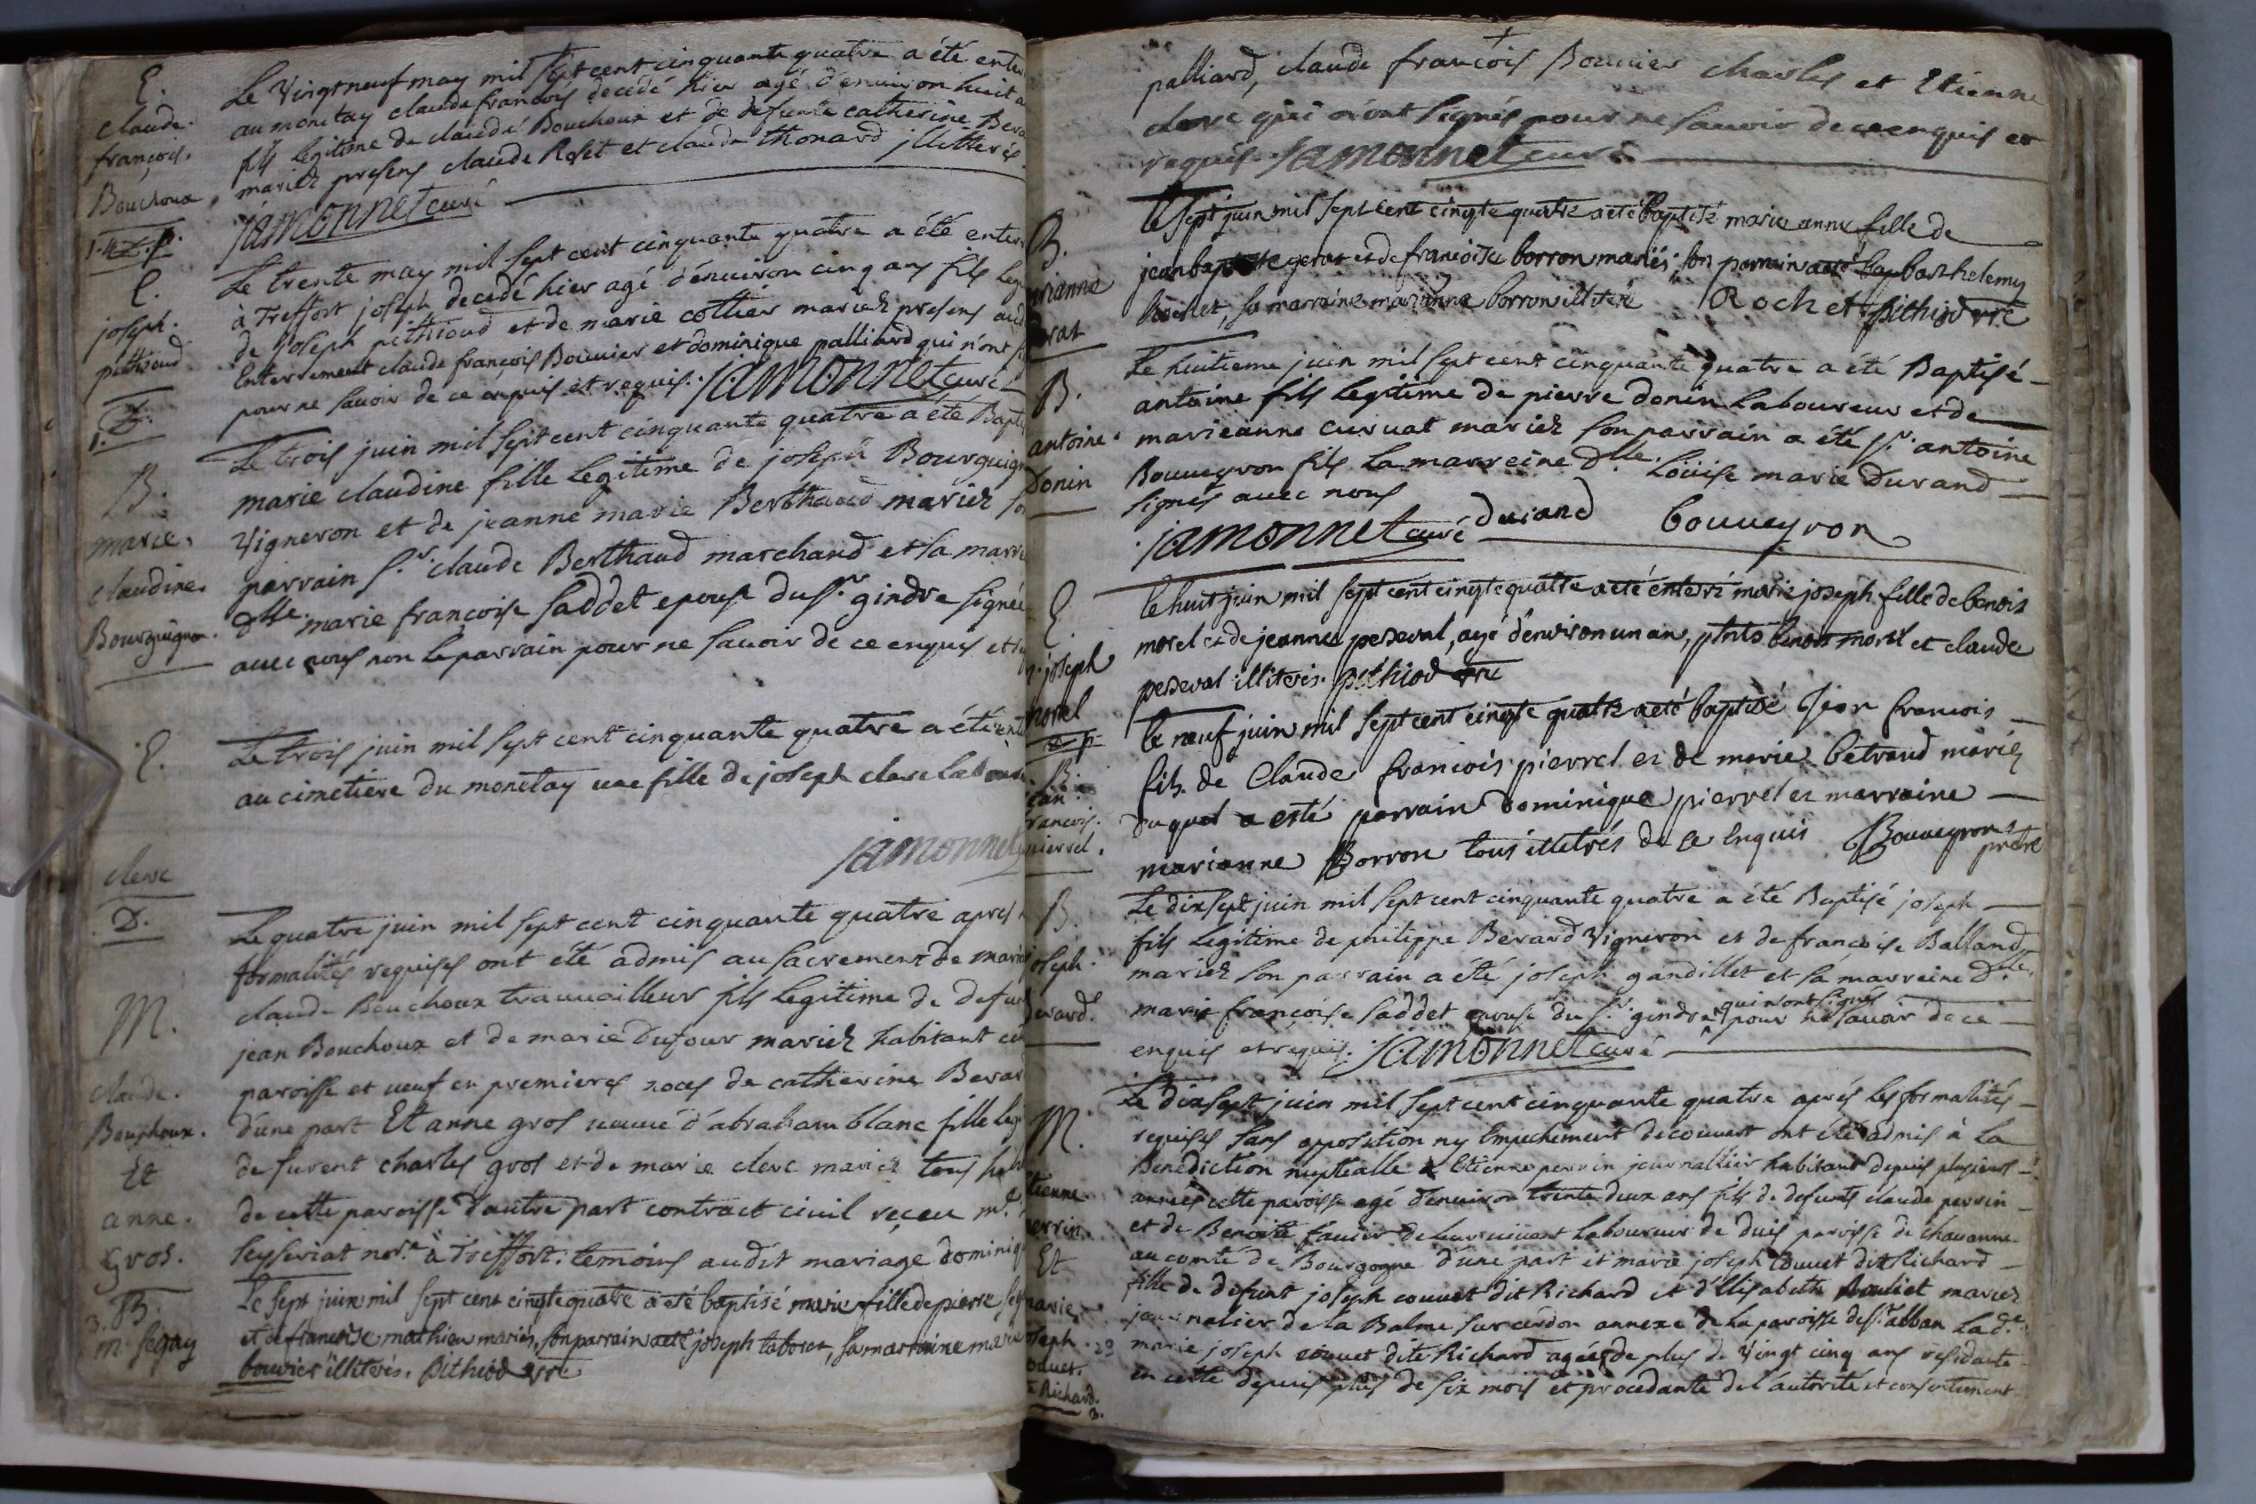 E.
claude.
françois.
Bouchoux
Le Vingt neuf may mil sept cent cinquante quatre a été enter
au monetay claude françois decedé hier agé d'environ huit a
fils legitime de claude Bouchoux et de defunte catherine Berar
mariez presens claude Rosset et claude thonard jllitterés
jamonnet curé
E.
joseph.
pithioud
Le trente may mil sept cent cinquante quatre a été enter
à Treffort joseph decedé hier agé d'environ cinq ans fils leg
de joseph pithioud et de marie cottier mariez presens aud
Enterrement claude françois Bouvier et dominique palliard qui n'ont
pour ne savoir de ce enquis et requis. jamonnet curé
B.
marie.
claudine.
Bourguignon.
Le trois juin mil sept cent cinquante quatre a été Bapti
marie claudine fille legitime de joseph Bourguign
Vigneron et de jeanne marie Berthaud mariez son
parrain Sr. claude Berthaud marchand et sa marre
dlle. marie françoise Saddet epouse du Sr. gindre signée
avec nous non le parrain pour ne savoir de ce enquis et
E.
clerc
Le trois juin mil sept cent cinquante quatre a été ente
au cimetiere du monetay une fille de joseph clerc labour
jamonnet
D.
M.
claude.
Bouchoux.
Et
anne.
gros.
Le quatre juin mil sept cent cinquante quatre apres
formalités requises ont été admis au sacrement de maria
claude Bouchoux travvailleur fils legitime de defunt
jean Bouchoux et de marie Dufour mariez habitant en
paroisse et veuf en premieres noces de catherine Berar
d'une part Et anne gros veuve d'abraham blanc fille leg
de furent charles gros et de marie clerc mariez tous
de cette paroisse d'autre part contract civil reçeu me.
Seyseriat nore. à Treffort. temoins audit mariage dominiq
B.
m. Segay
Le sept juin mil sept cent cinqte quatre a eté baptisé marie fille de pierre Seg
et de francoise mathieu mariés, son parrain a eté joseph taboret, sa marraine marie
bouvier illiterés. pithiod vre
palliard, claude françois Bouvier charles et Etienne
clerc qui n'ont signés pour ne savoir de ce enquis et
requis. jamonnet curé
B.
rianne
erat
le Sept juin mil sept cent cinqte quatre a eté baptisé marie anne fille de
jean baptiste gerat et de francoise borron mariés; son parrain a eté barthelemy
Rochet, sa marraine marianne borron illiterée Rochet pithiod vre
B.
antoine.
Donin
Le huitieme juin mil sept cent cinquante quatre a été Baptisé
antoine fils legitime de pierre donin laboureur et de
marieanne curvat mariez son parrain a été Sr. antoine
Bouveyron fils la marreine dlle. Loüise marie durand
signés avec nous
jamonnet curé durand bouveyron
E.
joseph
morel
le huit juin mil sept cent cinqte quatre a eté enterré marie joseph fille de benoit
morel et de jeanne perdeval, agé d'environ un an, pnts benoit morel et claude
perdeval illiterés. pithiod vre
B.
ean.
rancois.
ierrel.
le neuf juin mil sept cent cinqte quatre a eté baptisé jean francois
fils de Claude francois pierrel et de marie betrand mariéz
duquel a esté parrain dominique pierrel et marraine
marianne Borron tous illetrés de ce enquis Bouveyron prêtre
B.
oseph.
erard.
Le dix sept juin mil sept cent cinquante quatre a été Baptisé joseph
fils legitime de philippe Berard Vigneron et de francoise Balland
mariez son parrain a été joseph gandillet et sa marreine dlle.
marie françoise Saddet epouse du Sr. gindre qui n'ont signés pour ne savoir de ce
enquis et requis. jamonnet curé
M.
tienne.
errin.
Et
marie.
oseph.
ouvet.
Richard.
Le dix sept juin mil sept cent cinquante quatre aprés les formalités
requises sans opposition ny Empechement decouvert ont été admis à la
Benediction nuptialle Etienne perrin journallier habitant depuis plusieurs
années cette paroisse agé d'environ trente deux ans fils de defunts claude perrin
et de Benoite favier de leur vivant laboureur de duis paroisse de chavanne
au comté de Bourgogne d'une part et marie joseph couvet dit Richard
fille de defunt joseph couvet dit Richard et d'Elisabeth mariez
journalier de la Balme sur cerdon annexe de la paroisse de St. alban la de.
marie joseph couvet dite Richard agée de plus de Vingt cinq ans residante
en cette depuis plus de six mois et procedante de l'autorité et consentement